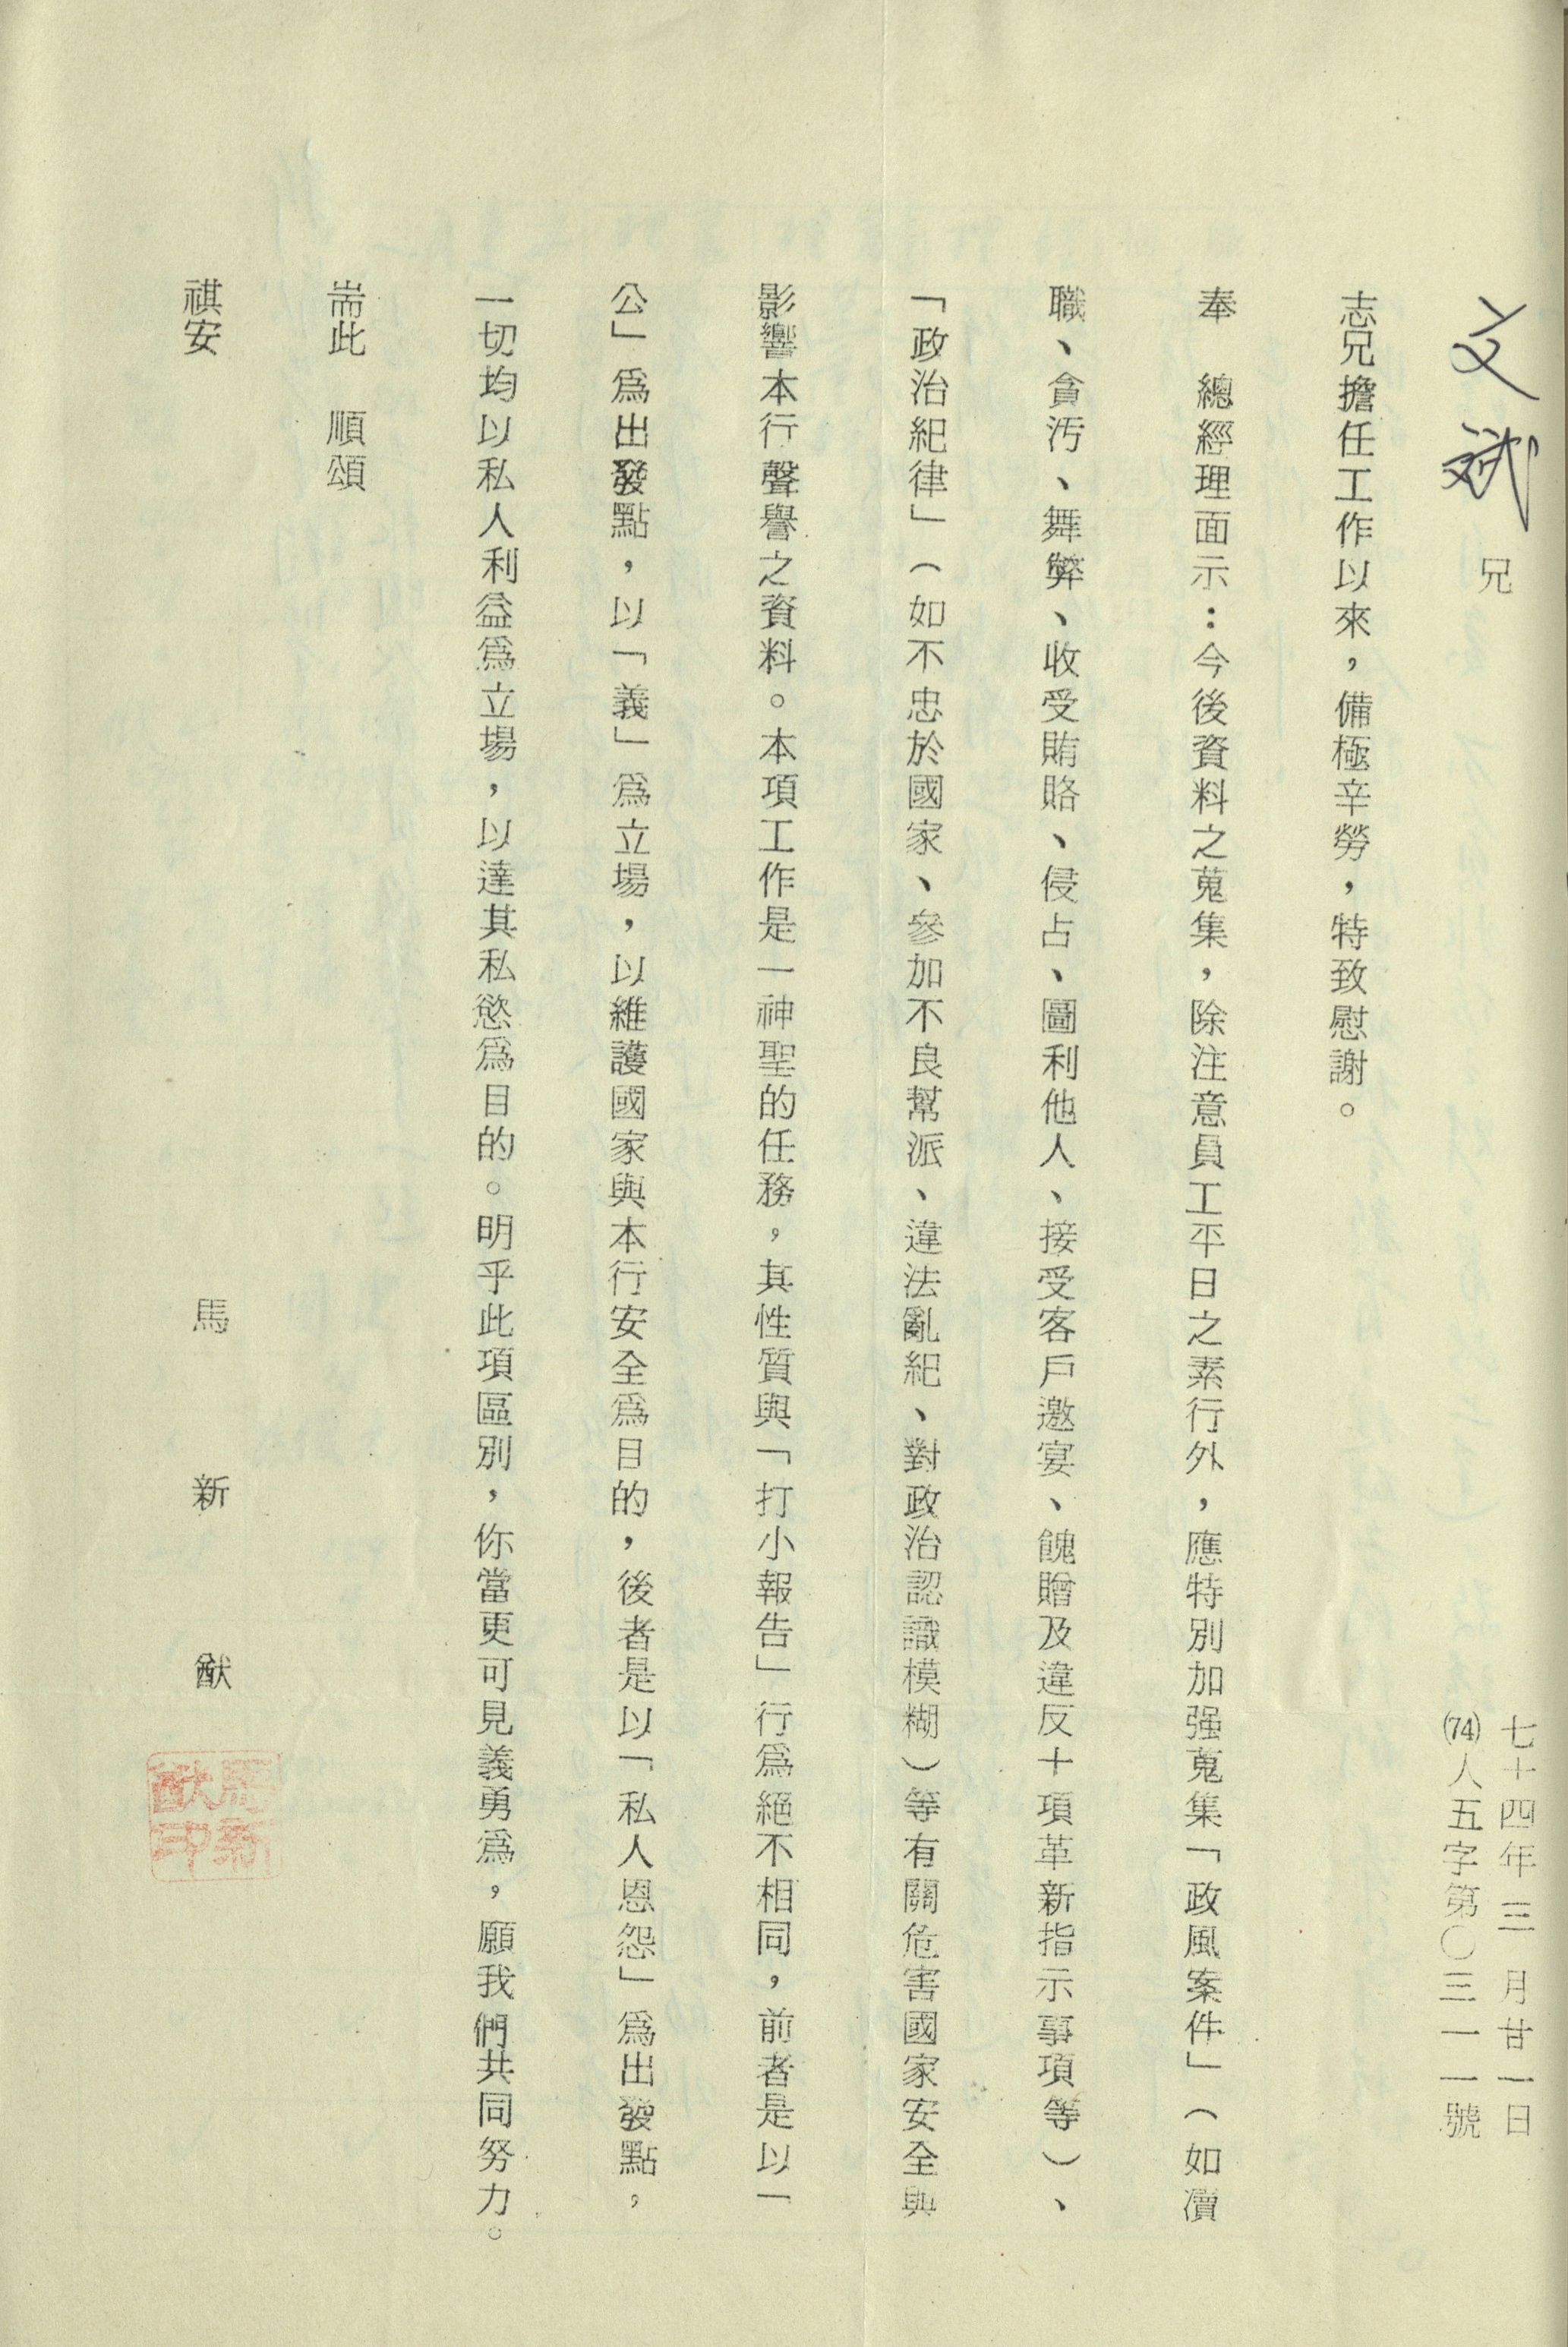 七十四年三月廿一日
(74)人五字第〇三一一號
文斌兄
志兄擔任工作以來，備極辛勞，特致慰謝。
奉　總經理面示：今後資料之蒐集，除注意員工平日之素行外，應特別加强蒐集「政風案件」（如瀆
職、貪污、舞弊、收受賄賂、侵占、圖利他人、接受客戶邀宴、餽贈及違反十項革新指示事項等）、
「政治紀律」（如不忠於國家、參加不良幫派、違法亂紀、對政治認識模糊）等有關危害國家安全與
影響本行聲譽之資料。本項工作是一神聖的任務，其性質與「打小報告」行爲絕不相同，前者是以「
公」爲出發點，以「義」爲立場，以維護國家與本行安全爲目的，後者是以「私人恩怨」爲出發點，
一切均以私人利益爲立場，以達其私慾爲目的。明乎此項區別，你當更可見義勇爲，願我們共同努力。
耑此　順頌
祺安
馬新猷
馬新猷印